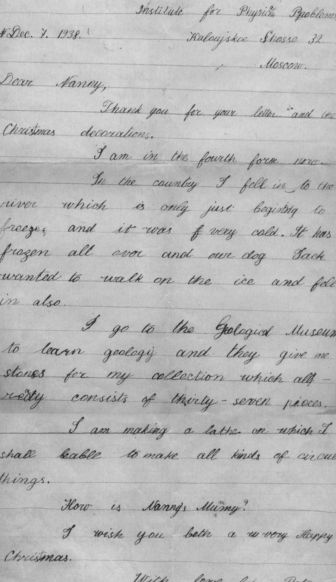 Institute for Physics Problems
Dec. 7. 1938. Kaloujskoe Shosse 32
Moscow.
Dear Nanny,
Thank you for your letter and the
Christmas decorations.
I am in the fourth form now.
In the country I fell in to the
river which is only just begining to
freeze, and it was very cold. It has
frozen all over and our dog Jack
wanted to walk on the ice and fell
in also.
I go to the Geological Museum
to learn geology and they give me
stones for my collection which all-
redy consists of thirty-seven pieces.
I am making a latte on which I
shall bable to make all kinds of circul
things.
How is Nanny's Mumy?
I wish you both a very Happy
Christmas.
With love